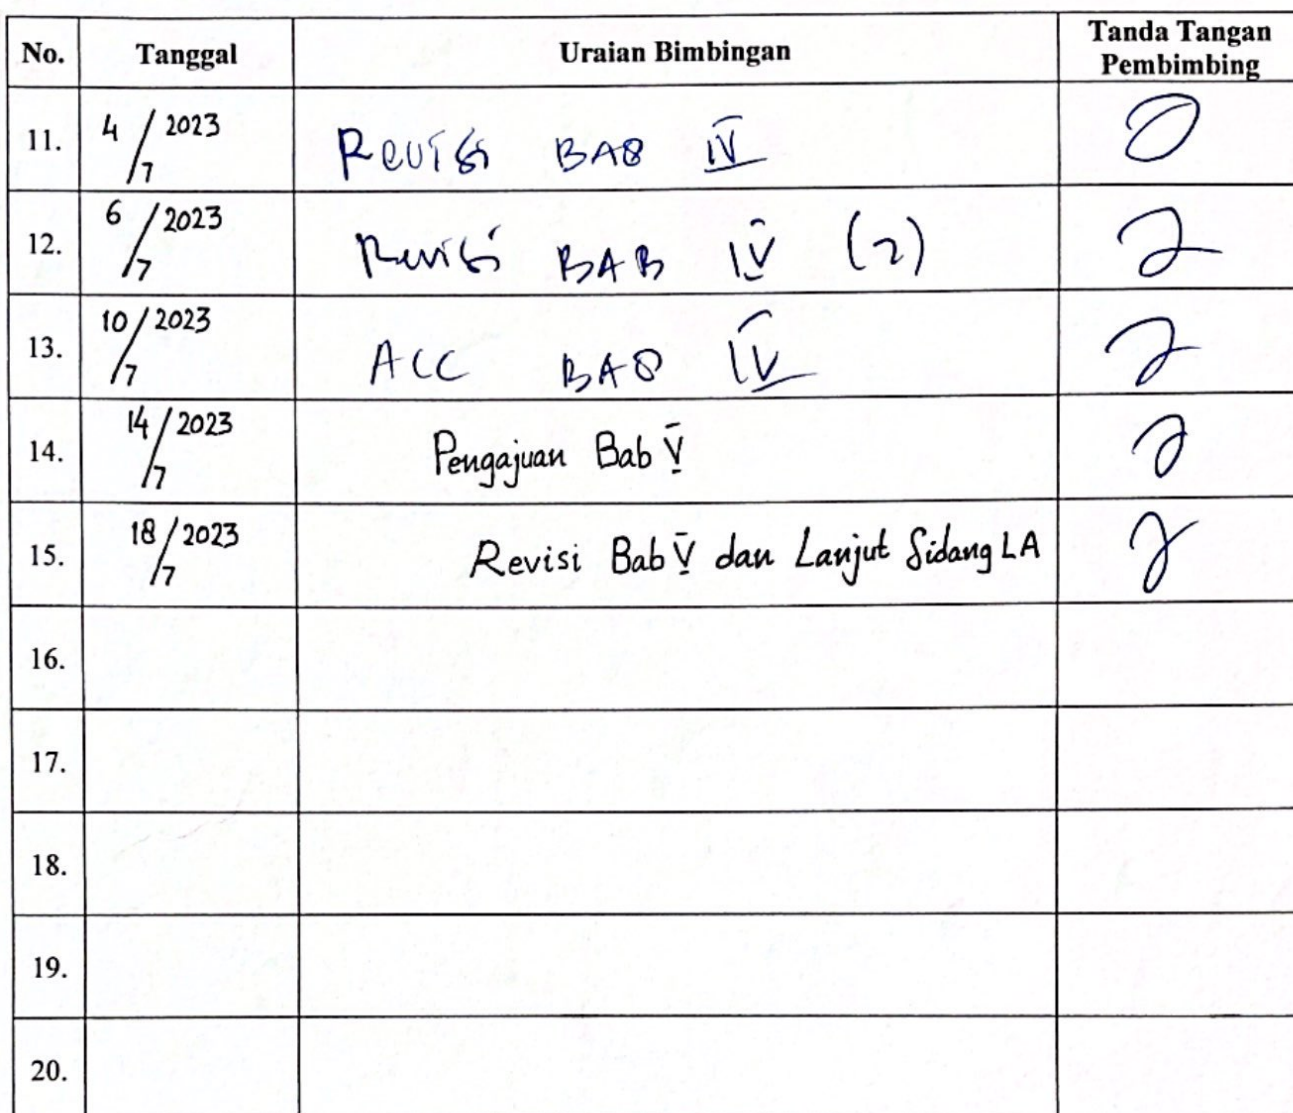 No. Tanggal Uraian Bimbingan Tanda Tangan
Pembimbing
11. 4/7 2023 Revisi BAB IV
12. 6/7 2023 Revisi BAB IV (2)
13. 10/7 2023 ACC BAB IV
14. 14/7 2023 Pengajuan Bab V
15. 18/7 2023 Revisi Bab V dan Lanjut Sidang LA
16.
17.
18.
19.
20.